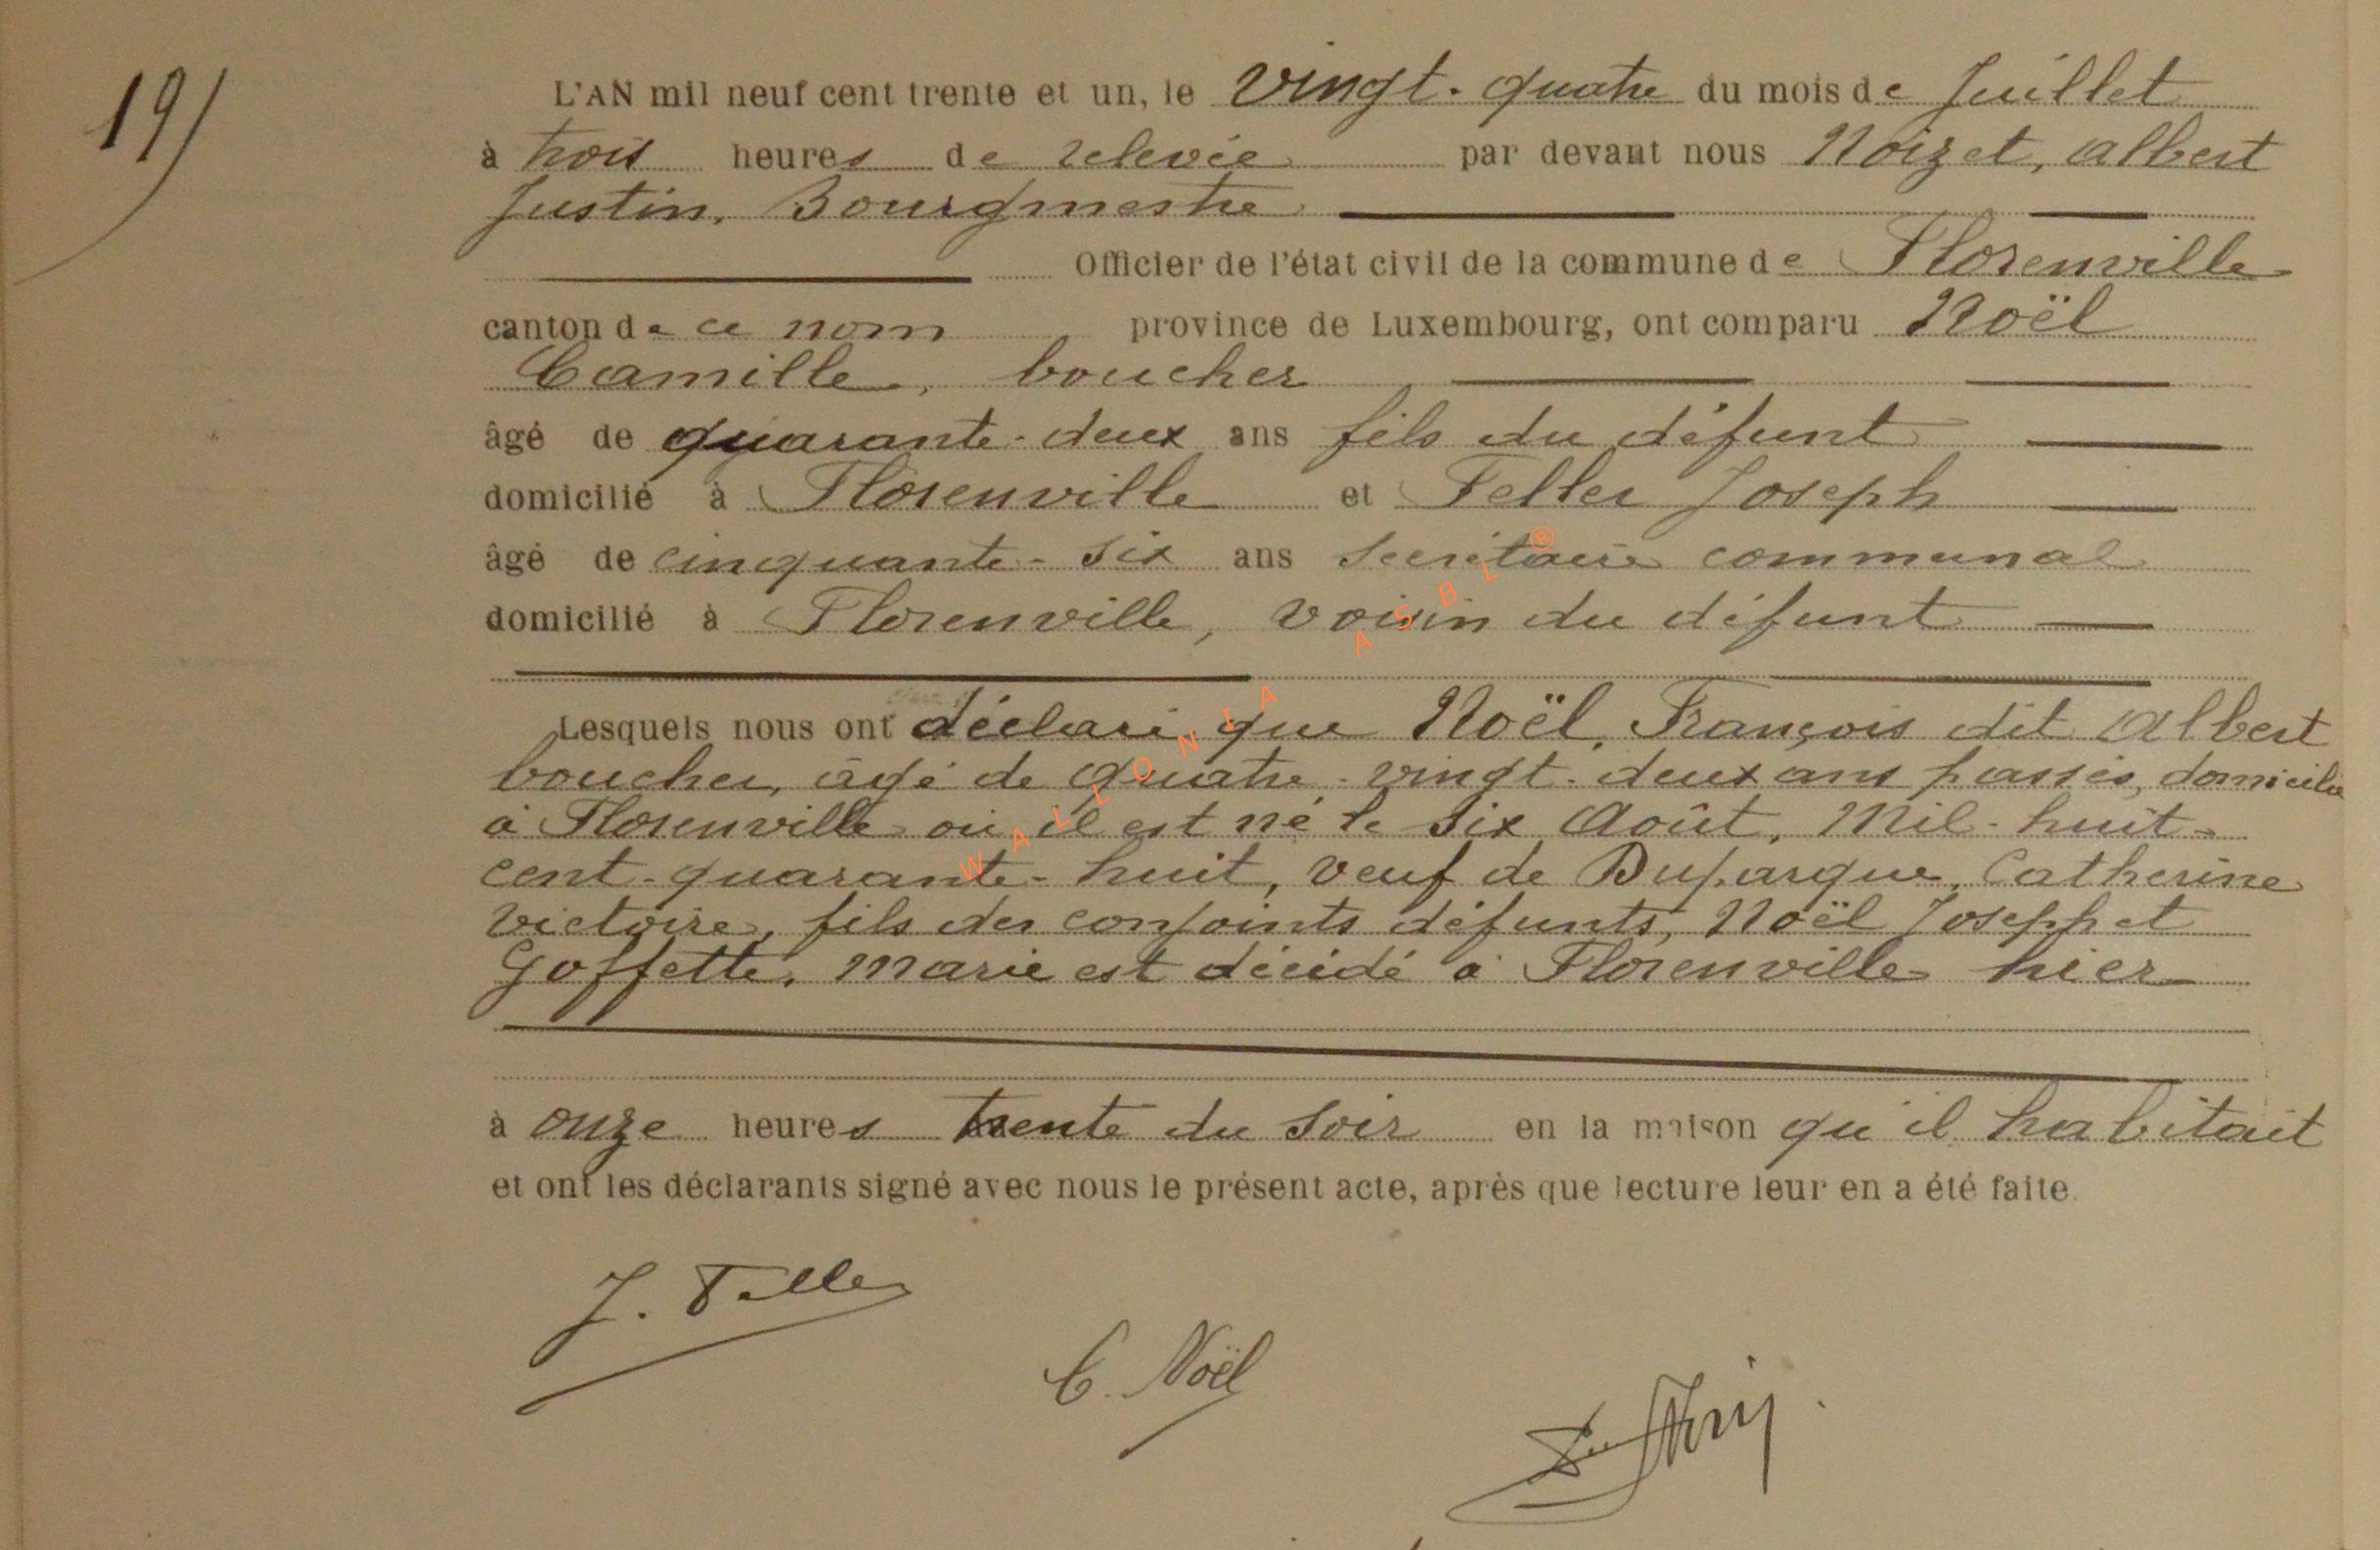 19/
L'AN mil neuf cent trente et un, le vingt-quatre du mois de Juillet
à trois heures de relevée par devant nous Noizet, Albert
Justin, Bourgmestre
Officier de l'état civil de la commune de Florenville
canton de ce nom province de Luxembourg, ont comparu Noël
Camille, boucher
âgé de quarante-deux ans fils du défunt
domicilié à Florenville et Feller Joseph
âgé de cinquante-six ans secrétaire communal
domicilié à Florenville, voisin du défunt
Lesquels nous ont déclaré que Noël, François dit Albert
boucher, âgé de quatre-vingt-deux ans passés, domicilié
à Florenville où il est né le six Août, Mil-huit-
cent-quarante-huit, veuf de Duparque, Catherine
Victoire, fils des conjoints défunts, Noël Joseph et
Goffette, Marie est décédé à Florenville hier
à onze heures trente du soir en la maison qu'il habitait
et ont les déclarants signé avec nous le présent acte, après que lecture leur en a été faite.
J. Feller
C. Noël
WALLONIA ASBL ®